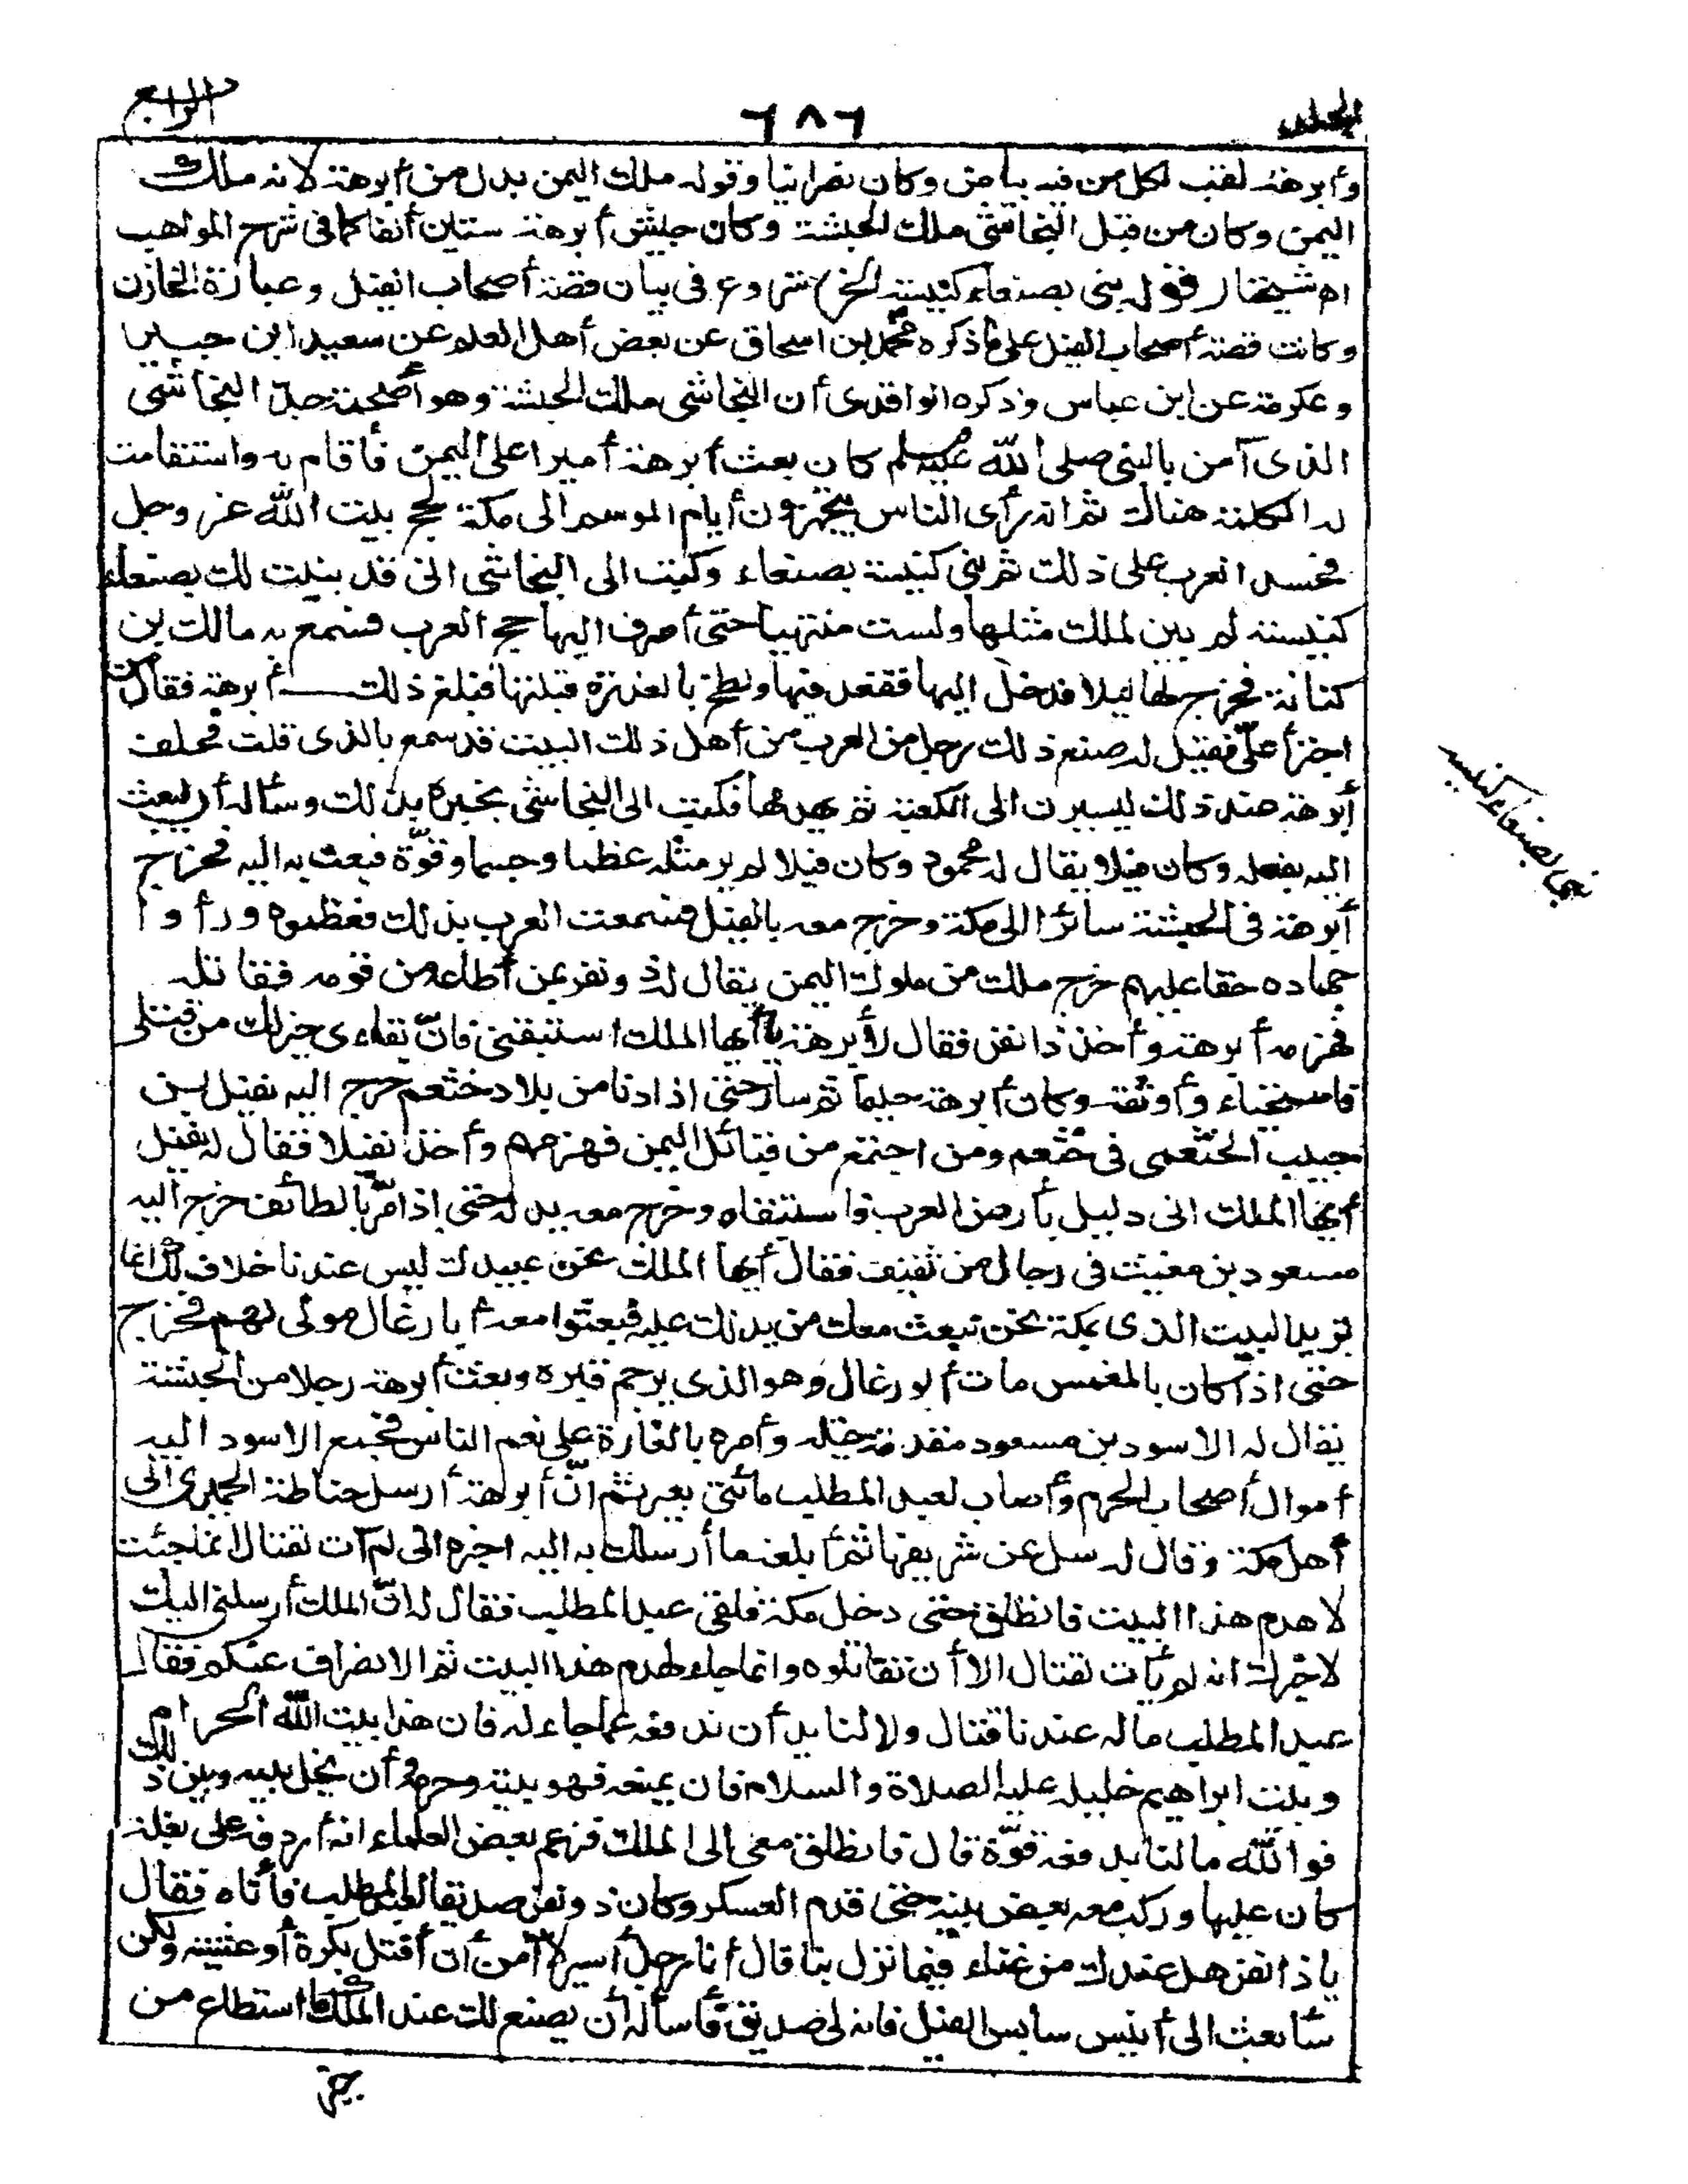 المجلد ٦٨٦ الرابع
وأبرهة لقب لكل من فيه بياض وكان نصرانيا وقوله ملك اليمن بدل من أبرهة لانه ملك
اليمن وكان من قبل النجاشى ملك الحبشة وكان جيش أبرهة ستين ألفا كما فى شرح المواهب
اه شيخنا (قوله بنى بصنعاء كنيسة الخ) شروع فى بيان قصة أصحاب الفيل وعبارة الخازن
وكانت قصة أصحاب الفيل على ما ذكره محمد بن اسحاق عن بعض أهل العلم عن سعيد ابن جبير
وعكرمة عن ابن عباس وذكره الواقدى أن النجاشى ملك الحبشة وهو أصحمة جد النجاشى
الذى آمن بالنبى صلى الله عليه وسلم كان بعث أبرهة أميرا على اليمن فأقام به واستقامت
له الكلمة هناك ثم انه رأى الناس يتجهزون أيام الموسم الى مكة لحج بيت الله عز وجل
فحسد العرب على ذلك ثم بنى كنيسة بصنعاء وكتب الى النجاشى انى قد بنيت لك بصنعاء
كنيسة لم يبن لملك مثلها ولست منتهيا حتى أصرف اليها حج العرب فسمع به مالك بن
كنانة فخرج لها ليلا فدخل اليها فقعد فيها ولطخ بالعذرة قبلتها فبلغ ذلك أبرهة فقال من
اجترأ علىّ فقيل له صنع ذلك رجل من العرب من أهل ذلك البيت قد سمع بالذى قلت فحلف
أبرهة عند ذلك ليسيرن الى الكعبة ثم يهدمها فكتب الى النجاشى يخبره بذلك وسأله أن يبعث
اليه بفيله وكان فيلا يقال له محمود وكان فيلا لم ير مثله عظما وجسما وقوّة فبعث به اليه فخرج
أبرهة فى الحبشة سائرا الى مكة وخرج معه بالفيل فسمعت العرب بذلك فعظموه ورأوا
جهاده حقا عليهم خرج ملك من ملوك اليمن يقال له ذو نفر بمن أطاعه من قومه فقاتله
فهزمه أبرهة وأخذ ذا نفر فقال لأبرهة يا أيها الملك استبقنى فانّ بقاءى خير لك من قتلى
فاستحياه وأوثقه وكان أبرهة حليما ثم سار حتى اذا دنا من بلاد خثعم خرج اليه نفيل بن
حبيب الخثعمى فى خثعم ومن اجتمع من قبائل اليمن فهزمهم وأخذ نفيلا فقال له نفيل
أيها الملك انى دليل بأرض العرب فاستبقاه وخرج معه يدله حتى إذا مرّ بالطائف خرج اليه
مسعود بن مغيث فى رجال من ثقيف فقال أيها الملك نحن عبيدك ليس عندنا خلاف لك انما
تريد البيت الذى بمكة نحن نبعث معك من يدلك عليه فبعثوا معه أبا رغال مولى لهم فخرج
حتى اذا كان بالمغمس مات أبو رغال وهو الذى يرجم قبره وبعث أبرهة رجلا من الحبشة
يقال له الاسود بن مسعود مقدمة خيله وأمره بالغارة على نعم الناس فجمع الاسود اليه
أموال أصحاب الحرم وأصاب لعبد المطلب مائتى بعير ثم انّ أبرهة أرسل حناطة الحميرى الى
أهل مكة وقال له سل عن شريفها ثم أبلغه ما أرسلك به اليه اخبره انى لم آت لقتال انما جئت
لاهدم هذا البيت فانطلق حتى دخل مكة فلقى عبد المطلب فقال له انّ الملك أرسلنى اليك
لاخبرك انه لم يأت لقتال الا أن تقاتلوه وانما جاء لهدم هذا البيت ثم الانصراف عنكم فقال
عبد المطلب ماله عندنا قتال ولا لنا يد أن ندفعه عما جاء له فان هذا بيت الله الحرام
وبيت ابراهيم خليله عليه الصلاة والسلام فان يمنعه فهو بيته وحرمه وأن يخل بينه وبين ذلك
فو الله ما لنا بدفعه قوّة قال فانطلق معى الى الملك فزعم بعض العلماء انه أردفه على بغلة
كان عليها وركب معه بعض بنيه حتى قدم العسكر وكان ذو نفر صديقا لعبد المطلب فأتاه فقال
يا ذا نفر هل عندك من غناء فيما نزل بنا قال أنا رجل أسير لا آمن أن أقتل بكرة أو عشية ولكن
سأبعث الى أنيس سايس الفيل فانه لى صديق فأسأله أن يصنع لك عند الملك ما استطاع من
بنى بصنعاء كنيسة